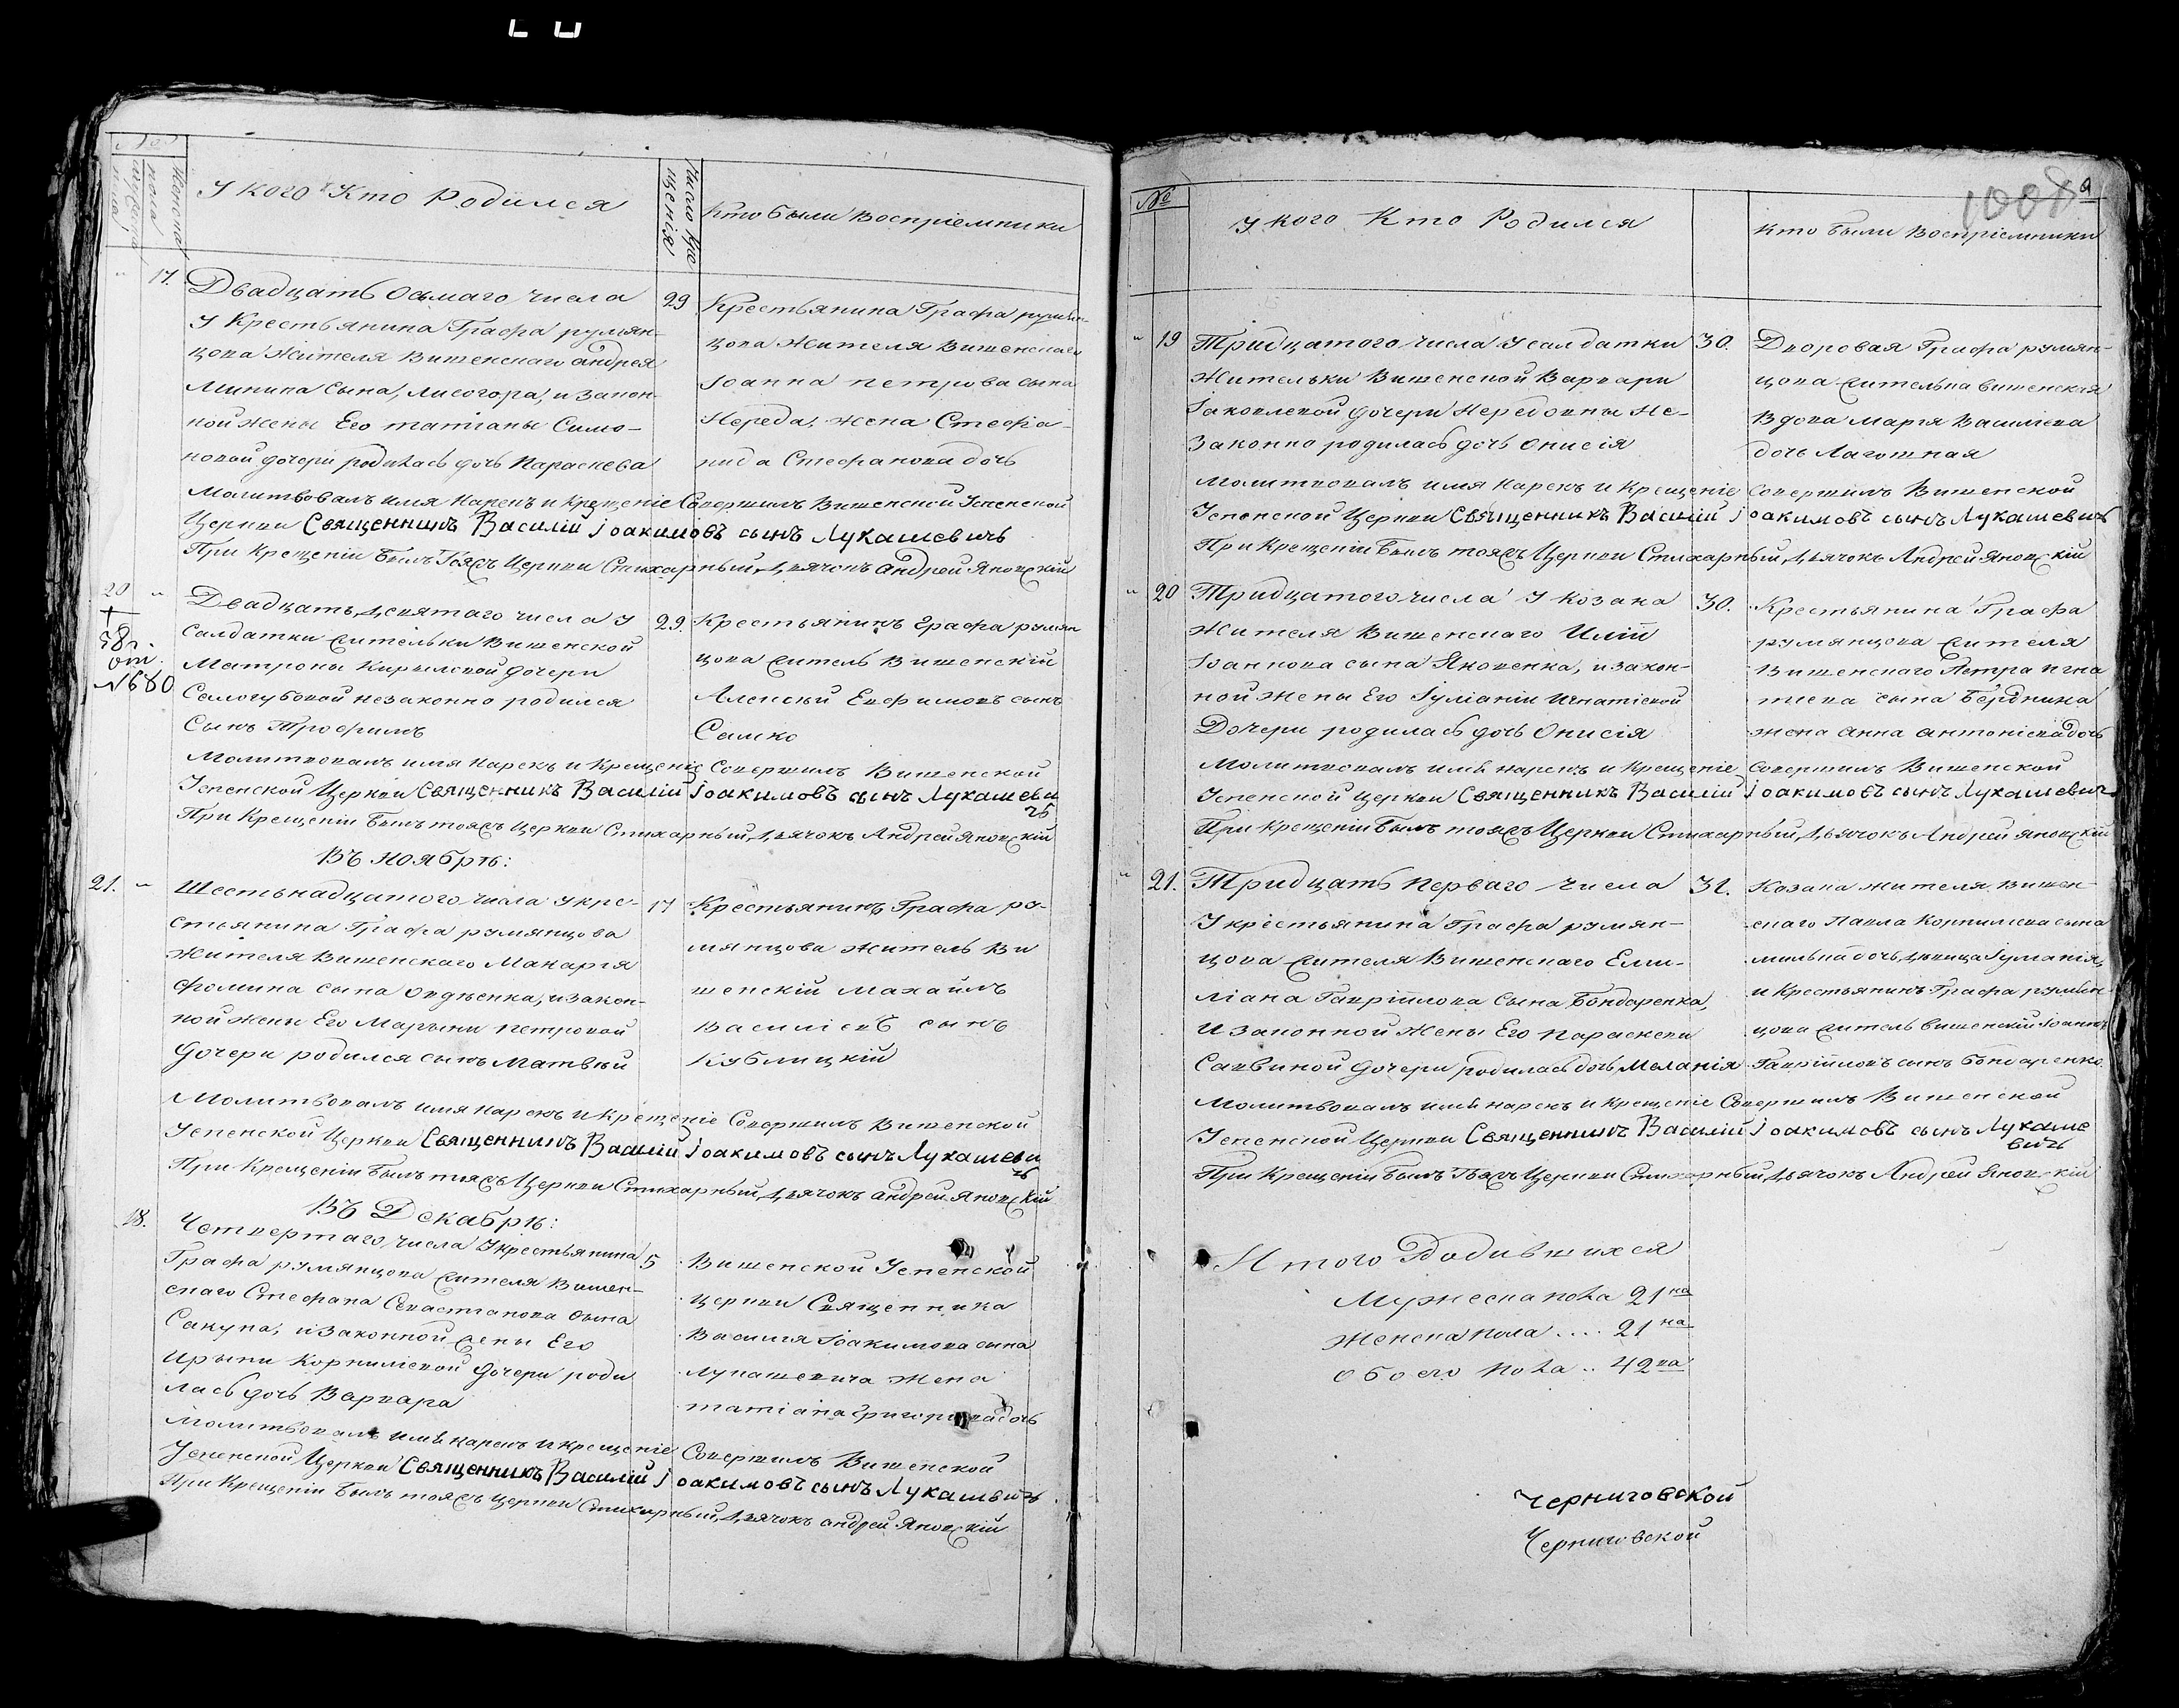 №
мужеска пола
женска пола
У кого Кто Родился
Число крещенія
Кто были Воспріемники
17.
Двадцать Осьмаго Числа
29
Крестьянина Графа румян-
У Крестьянина Графа румян-
цова Жителя Вишенскаго
цова Жителя Вишенскаго андрея
Іоанна петрова сына
Минина сына, Лисогора, и закон-
Череда, жена Стефа-
ной жены Его татіаны Симо-
нида Стефанова дочь
новой дочери родилась дочь Параскева
Молитвовалъ имя Нарекъ и Крещеніе Совершилъ Вишенской Успенской
Церкви Священникъ Василій Іоакимовъ сынъ Лукашевичъ
При Крещеніи Былъ Тояжъ Церкви Стихарный Дьячокъ андрей Яновскій
20
58 г.
от
№ 680
Двадцать Девятаго числа У
29.
Крестьянинъ Графа румян
салдатки жительки Вишенской
цова житель Вишенскій
Матроны Кириловой дочери
Алексѣй Евфимовъ сынъ
Самогубовой незаконно родился
Самко
Сынъ Трофимъ
Молитвовалъ имя Нарекъ и Крещеніе Совершилъ Вишенской
Успенской Церкви Священникъ Василій Іоакимовъ сынъ Лукашеви
чъ
При Крещеніи Былъ тояжъ Церкви Стихарный Дьячокъ Андрей Яновскій
Въ Ноябрѣ:
21.
Шестьнадцатого числа У кре-
17
Крестьянинъ Графа ру-
стьянина Графа румянцова
мянцова житель Ви
Жителя Вишенскаго Макарія
шенскій Михаилъ
Фомина сына Овдѣенка, и закон-
Василіевъ сынъ
ной жены Его Марыни петровой
Кублицкій
Дочери родился сынъ Матвѣй
Молитвовалъ имя нарекъ и Крещеніе Совершилъ Вишенской
Успенской Церкви Священникъ Василій Іоакимовъ сынъ Лукашеви
чъ
При Крещеніи Былъ тояжъ Церкви Стихарный Дьячокъ андрей Яновскій
Въ Декабрѣ:
18.
Четвертаго числа У крестьянина
5
Вишенской Успенской
Графа румянцова жителя Вишен-
церкви Священника
скаго Стефана Севастіанова сына
Василія Іоакимова сына
Сакуна, и законной жены Его
Лукашевича жена
Ирыни Корниліевой Дочери роди
татіана Григоріева дочь
лась дочь Варвара
Молитвовалъ имя нарекъ и крещеніе Совершилъ Вишенской
Успенской Церкви Священникъ Василій Іоакимовъ сынъ Лукашевичъ
При Крещеніи Былъ тояжъ церкви Стихарный Дьячокъ андрей Яновскій
№
У кого Кто Родился
Кто были Воспріемники
1008
19
Тридцатого числа У салдатки
30.
Дворовая Графа румян-
Жительки Вишенской Варвари
цова жителька вишенская
Іаковлевой дочери Чередовны не-
Вдова Марія Василіева
Законно родилась дочь Онисія
дочь Лагошная
Молитвовалъ имя нарекъ и Крещеніе Совершилъ Вишенской
Успенской Церкви Священникъ Василій Іоакимовъ сынъ Лукашевичъ
При Крещеніи Былъ тояжъ Церкви Стихарный Дьячокъ Андрей Яновскій
20
Тридцатого числа У козака
30.
Крестьянина Графа
Жителя Вишенскаго Иліи
румянцова жителя
Іоаннова сына Яковенка, и закон-
Вишенскаго Петра Игна
ной жены Его Іуліаніи Игнатіевой
тіева сына Бердника
Дочери родилась дочь Онисія
жена Анна антоніева дочь
Молитвовалъ имя нарекъ и Крещеніе Совершилъ Вишенской
Успенской Церкви Священникъ Василій Іоакимовъ сынъ Лукашевичъ
При Крещеніи Былъ тояжъ Церкви Стихарный Дьячокъ Андрей Яновскій
21.
Тридцать Перваго Числа
31.
Козака жителя Вишен-
У крістьянина Графа румян-
скаго Павла Корниліева сына
цова жителя Вишенскаго Еми-
дочь девица Іуліанія,
ліана Гавріилова Сына Бондаренка,
и Крестьянинъ Графа румян
И законной жены Его Параскеви
цова житель вишенскій Іоаннъ
Саввиной дочери родилась дочь Меланія
Гавріиловъ сынъ Бондаренко.
Молитвовалъ имя нарекъ и Крещеніе Совершилъ Вишенской
Успенской Церкви Священникъ Василій Іоакимовъ сынъ Лукаше
вичъ
При Крещеніи Былъ Тояжъ Церкви Стихарный Дьячокъ Андрей Яновскій
Итого Родившихся
Мужеска пола 21на
Женска пола .... 21на
обоего пола .. 42ва
Черниговской
Черниговской